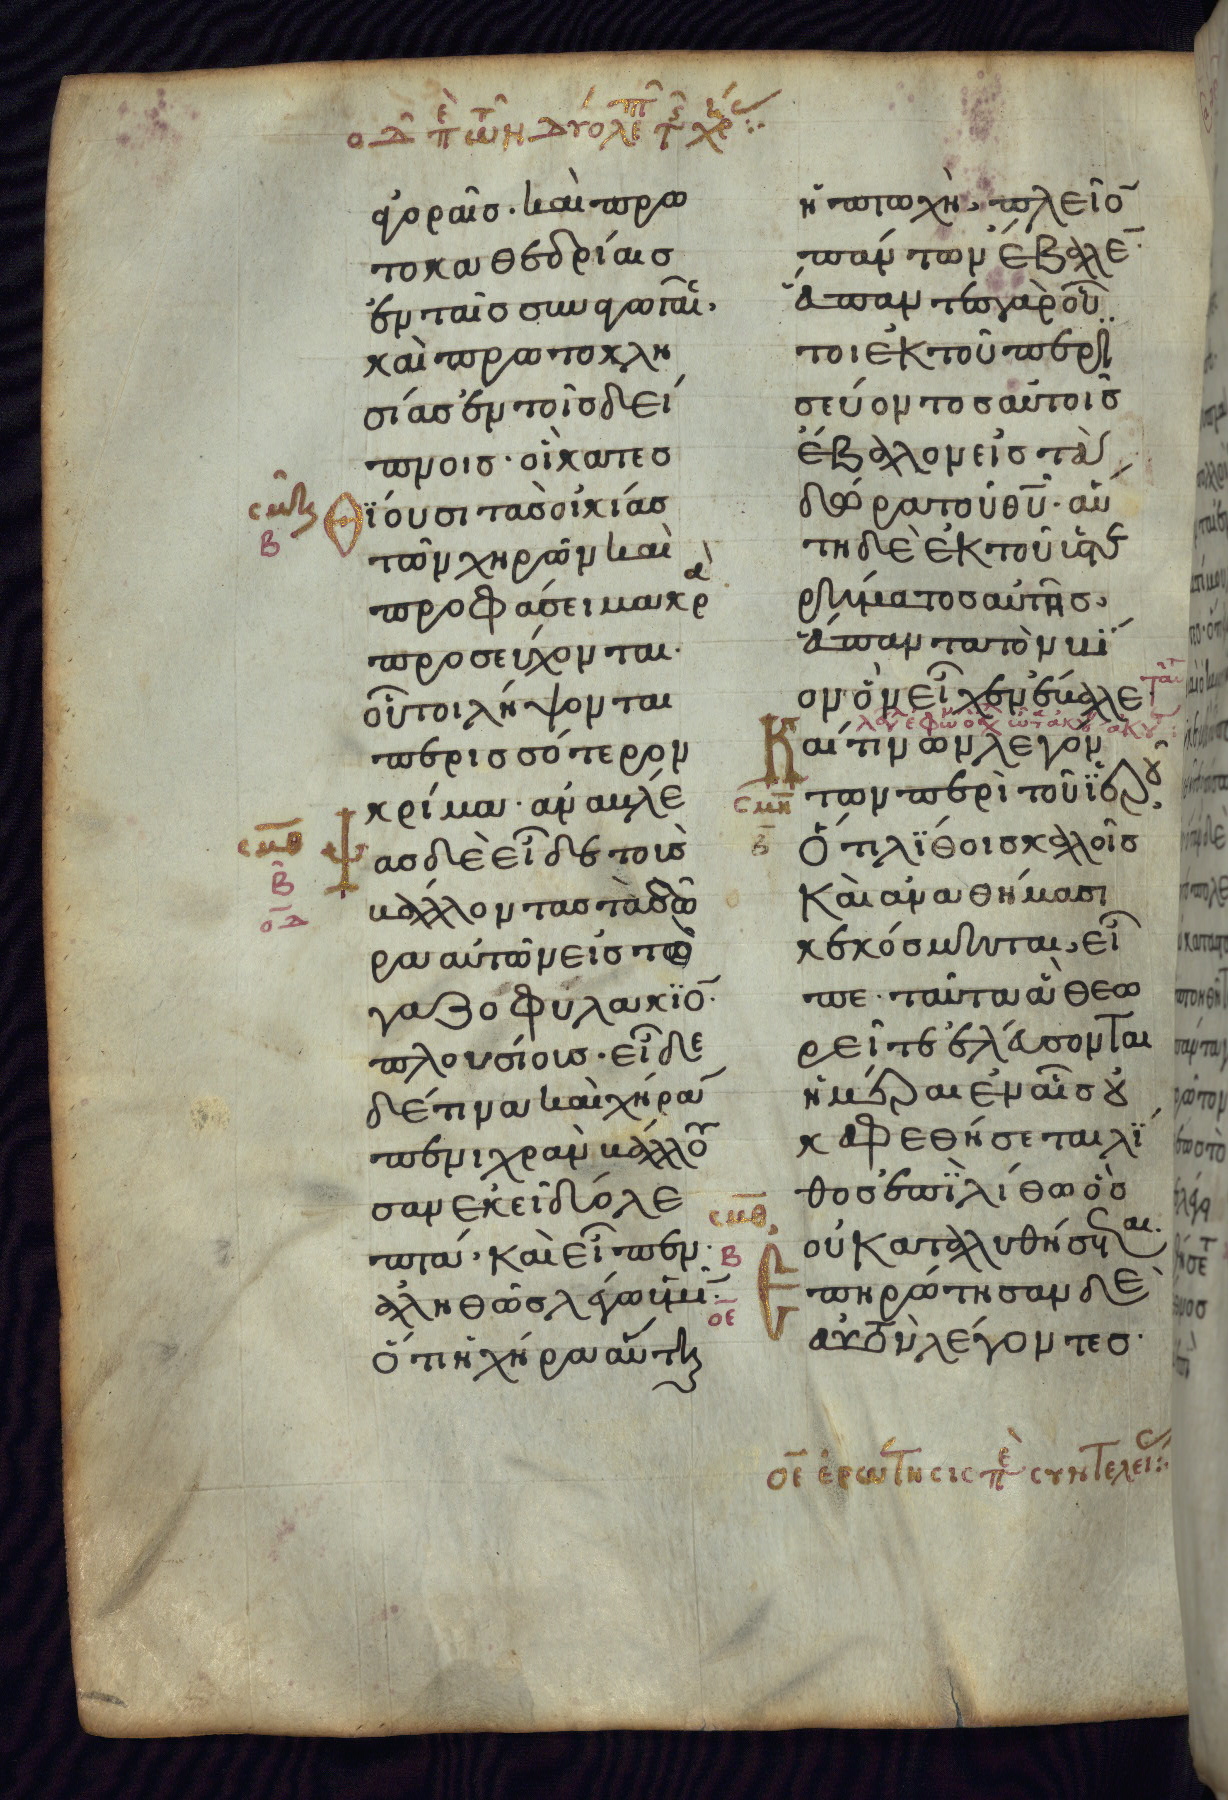 οδ π ε των δυο λεπτ χρ
φοραῖσ· καὶ πρω
τοκαθεδρίαισ
ἐν ταῖσ συναγωγαῖ,
καὶ πρωτοκλη
σίασ ἐν τοῖσ δεί
πνοισ· οἳ κατεσ
θΐουσι τὰσ οἰκίασ
τῶν χηρῶν καὶ
προφάσει μακρὰ
προσεύχονται·
οὗτοι λήψονται
περισσότερον
κρίμα· ἀναβλέ
ψασ δὲ εἶδε τοὺσ
βάλλοντασ τὰ δῶ
ρα αὐτῶν εἰσ τὸ
γαζοφυλακϊο̄·
πλουσίουσ· εἶδε
δέ τινα καὶ χήραν
πενιχρὰν βάλλου
σαν ἐκεῖ δύο λε
πτά· καὶ εἶπεν·
ἀληθῶσ λέγω ὑμῖν·
ὅτι ἡ χήρα αὕτη
ἡ πτωχὴ, πλεῖο̄
πάντων ἔβαλε̄·
ἅπαντεσ γὰρ οὗ
τοι ἐκ τοῦ περισ
σεύοντοσ αὐτοῖσ
ἔβαλον εἰσ τὰ
δῶρα τοῦ θῡ· αὕ
τη δὲ ἐκ τοῦ ὑστε
ρήματοσ αὐτῆσ,
ἅπαντα τὸν βί
ον ὃν εἶχεν ἔβαλε·
ταῦτ
λέγ ἐφών ὁ ἔχ ὦτ ἀκού ἀκουέτ
Καί τινων λεγόν
των περὶ τοῦ ϊεροῦ,
ὅτι λΐθοισ καλοῖσ
καὶ ἀναθήμασι
κεκόσμηται, εἶ
πε· ταῦτα ἃ θεω
ρεῖτε ἐλεύσονται
ἡμέραι ἐν αἷσ οὐ
κ ἀφεθήσεται λΐ
θοσ ἐπὶ λίθω ὃσ
οὐ καταλυθήσεται·
Ἐπηρώτησαν δὲ
αὐτὸν λέγοντεσ·
σμζ
β
σμθ
β
οδ
σμη
β
σμθ
β
οε
οε ἐρώτησισ π ε συντελεί